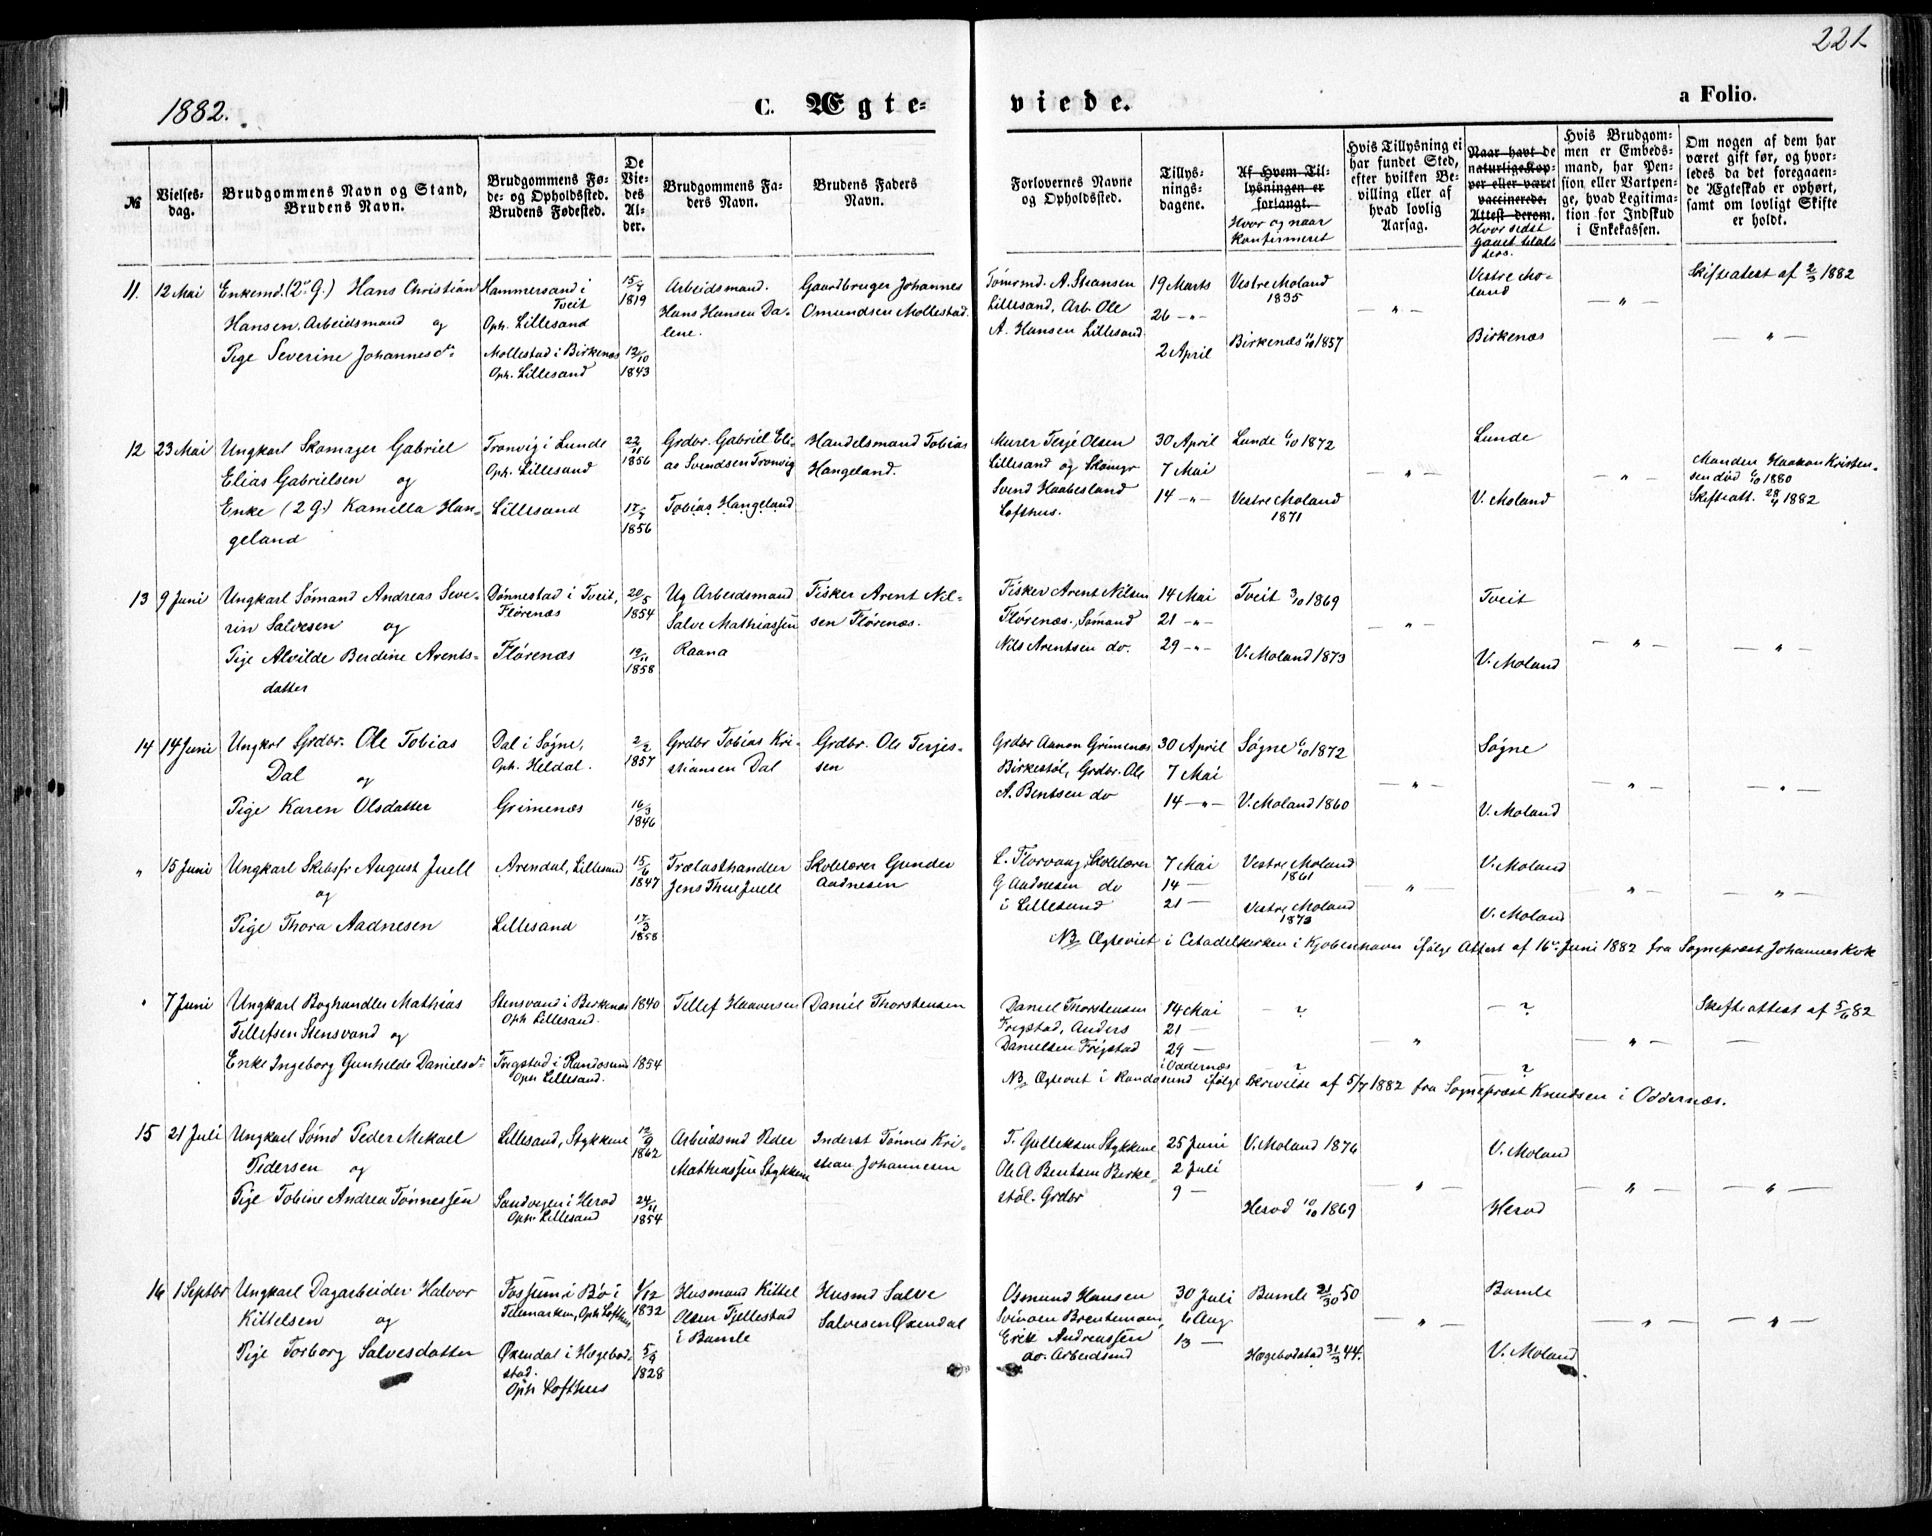 221
1882.
C. Ægte-
viede.
a Folio.
№
Vielses-
dag.
Brudgommens Navn og Stand,
Brudens Navn.
Brudgommens Fø-
de- og Opholdssted.
Brudens Fødested.
De
Vie-
des
Al-
der.
Brudgommens Fa-
ders Navn.
Brudens Faders
Navn.
Forlovernes Navne
og Opholdssted.
Tillys-
nings-
dagene.
Af Hvem Til-
lysningen er
forlangt.
Hvor og naar
konfirmeret
Hvis Tillysning ei
har fundet Sted,
efter hvilken Be-
villing eller af
hvad lovlig
Aarsag.
Naar havt de
naturlige Kop-
per eller været
vaccinerede.
Attest derom.
Hvor sidst
gaaet til Al-
ters.
Hvis Brudgom-
men er Embeds-
mand, har Pen-
sion eller Vartpen-
ge, hvad Legitima-
tion for Indskud
i Enkekassen.
Om nogen af dem har
været gift før, og hvor-
ledes da det foregaaen-
de Ægteskab er ophørt,
samt om lovligt Skifte
er holdt.
11. 12 Mai
Enkemd. (2. G.) Hans Christian
Hansen. Arbeidsmand og
Pige Severine Johannesd.
Hammersand i
Tveit
Oph. Lillesand
Mollestad i Birkenæs
Oph. Lillesand
1819
12/10
1843
Arbeidsmand.
Hans Hansen Da-
lene.
Gaardbruger Johannes
Omundsen Mollestad.
Tømrmd. A. Steansen
Lillesand, Arb. Ole
A. Hansen Lillesand
19 Marts
26 — " —
2 April
Vestre Moland
1835
Birkenæs 1857
— " —
Vestre Mo-
land
Birkenæs
— " —
Skifteatest af 2/3 1882
— " —
12 23 Mai
Ungkarl Skomager Gabriel
Elias Gabrielsen og
Enke (2 G.) Kamilla Han-
geland
Tronvig i Lunde
Oph. Lillesand
Lillesand
22/11
1856
1856
Grdbr. Gabriel Eli-
as Svendsen Tronvig
Tobias Hangeland
Handelsmand Tobias
Hangeland.
Murer Terje Olsen
Lillesand og Skomgr
Svend Haabesland
Lofthus.
30 April
7 Mai
14 — " —
Lunde 1/10 1872
Vestre Moland
1871
— " —
Lunde
V. Moland
— " —
Manden Haakon Kristen-
sen død 1880
Skifteatt. 1882
13 9 Juni
Ungkarl Sømand Andreas Seve-
rin Salvesen og
Pige Alvilde Berdine Arents-
datter
Dønnestad i Tveit,
Flørenæs
Flørenæs
20/5
1854
19/11
1858
Ug Arbeidsmand
Salve Mathiassen
Raana
Fisker Arent Nil-
sen Flørenæs.
Fisker Arent Nilsen
Flørenæs., Sømand
Nils Arentsen do.
14 Mai
21 — " —
29 — " —
Tveit 3/10 1869
V. Moland 1873
— " —
Tveit
V. Moland
— " —
— " —
14 14 Juni
Ungkrl Grdbr. Ole Tobias
Dal og
Pige Karen Olsdatter
Dal i Søgne,
Oph. Heldal.
Grimenæs
2/2
1857
16/3
1846
Grdbr Tobias Kri-
stiansen Dal
Grdbr. Ole Terjes-
sen
Grdbr Aanon Grimenæs
Birkestøl, Grdbr. Ole
A. Bentsen do
30 April
7 Mai
14 — " —
Søgne 1872
V. Moland 1860
— " —
Søgne
V. Moland
— " —
— " —
" 15 Juni
Ungkarl Skibsfr August Juell
og
Pige Thora Aadnesen
Arendal, Lillesand
Lillesand
15/6
1847
17/3
1858
Trælasthandler
Jens Thue Juell
Skolelærer Gunder
Aadnesen
L. Florvaag, Skolelærer
G Aadnesen do
i Lillesand
7 Mai
14 —
21 —
Vestre Moland
1861
Vestre Moland
1873
"
V. Moland
V. Moland
— " —
— " —
NB Ægteviet i Citadelkirken i Kjøbenhavn ifølge Attest af 16. Juni 1882 fra Sognepræst Johannes Kok
" 7 Juni
Ungkarl Boghandler Mathias
Tellefsen Stensvand og
Enke Ingeborg Gunhilde Daniels d.
Stensvand i Birkenæs
Oph. Lillesand.
Frigstad i Randøsund
Oph. Lillesand.
1840
1854
Tellef Haaversen
Daniel Thorstensen
Daniel Thorstensen
Frigstad, Anders
Danielsen Frigstad
14 Mai
21 —
29 —
i Oddernæs
— ? —
?
— " —
— ? —
?
— " —
Skifteattest af 5/6 82
— " —
NB Ægteviet i Randøsund ifølge Skrivelse af 5/7 1882 fra Sognepræst Knudsen i Oddernæs.
15 21 Juli
Ungkarl Sømd Peder Mikael
Pedersen og
Pige Tobine Andrea Tønnessen
Lillesand, Stykkene
Sandvigen i Herad
Oph. Lillesand
12/9
1862
24/11
1854
Arbeidsmd Peder
Mathiassen Stykkene
Inderst Tønnes Kri-
stian Johannesen
T. Gulliksen Stykkene
Ole A Bentsen Birke-
støl. Grdbr
25 Juni
2 Juli
9 —
V. Moland 1876
Herad 10/10 1869
— " —
V. Moland
Herad
— " —
— " —
16 1 Septbr
Ungkarl Dagarbeider Halvor
Kittelsen og
Pige Torborg Salvesdatter
Fossum i Bø i
Telemarken, Oph Lofthus
Øxendal i Hægebod-
stad.
Oph Lofthus
1/12
1832
5/9
1828
Husmand Kittel
Olsen Fjellestad
i Bamle
Husmd Salve
Salvesen Øxendal
Osmund Hansen
Erik Andreassen
do. Arbeidsmd
30 Juli
6 Aug
13 —
Bamle 50
Hægebodstad 31/3 44.
— " —
Bamle
V. Moland
— " —
— " —